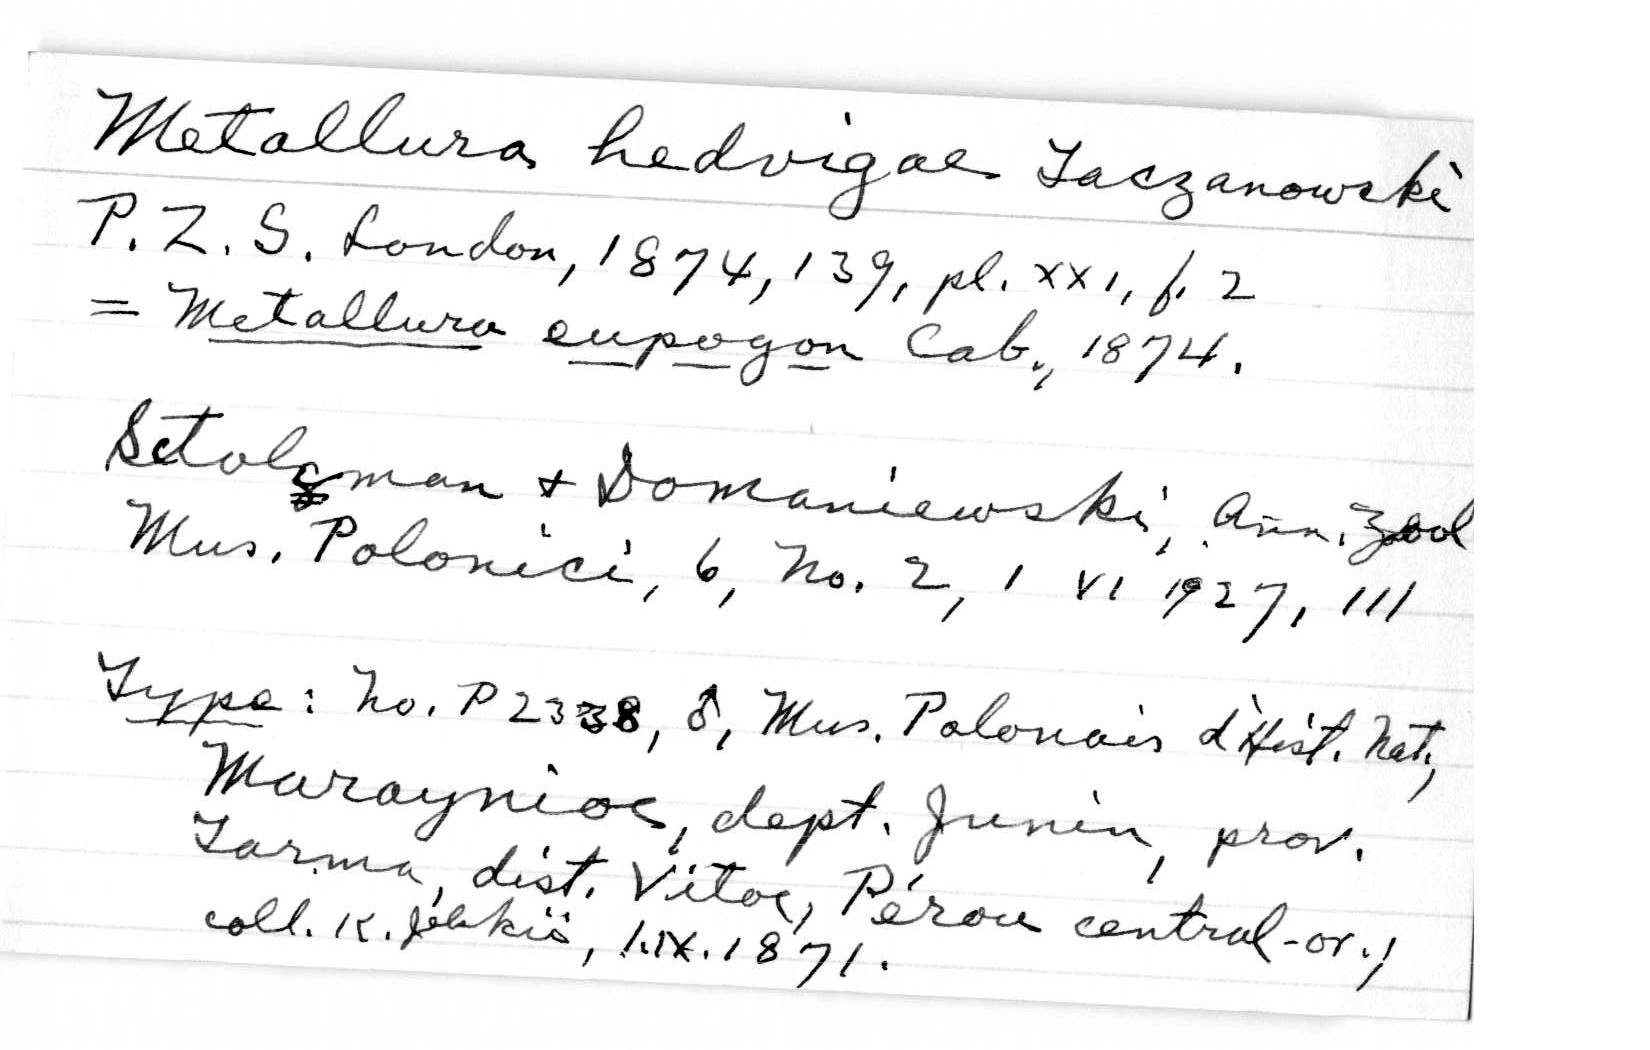 Metallura hedvigae Taczanowski
P. Z. S. London, 1874, 139, pl. xxi, f. 2
= Metallura eupogon Cab., 1874.
Sztolcman + Domaniewski, Ann. Zool
Mus. Polonici, 6, No. 2, 1 VI 1927, 111
Type: No. P 2338, ♂, Mus. Polonais d'Hist. Nat.,
Maraynioc, dept. Junin, prov.
Tarma, dist. Vitoc, Pérou central-or.,
coll. K. Jelskii, 1.IX.1871.